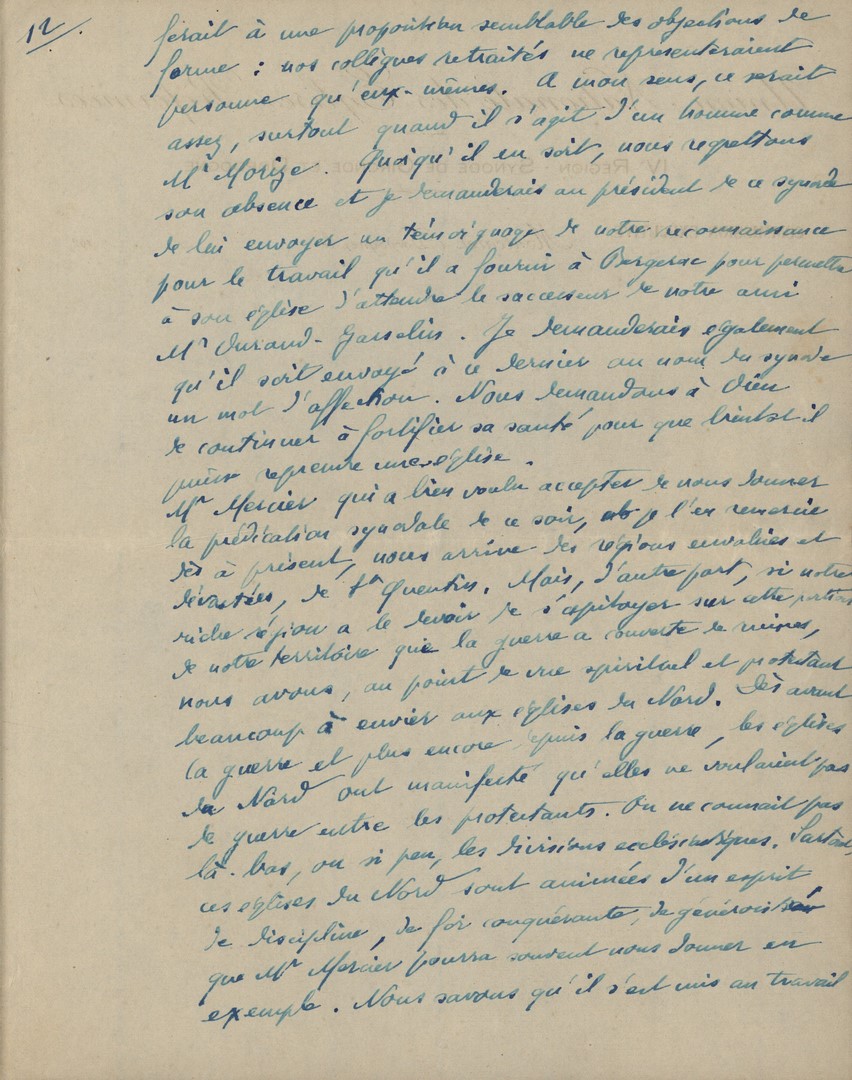 12
ferait à une proposition semblable des objections de
forme : nos collègues retraités ne représenteraient
personne qu'eux-mêmes. A mon sens, ce serait
assez, surtout quand il s'agit d'un homme comme
Mr Morize. Quoiqu'il en soit, nous regrettons
son absence et je demanderais au président de ce synode
de lui envoyer un témoignage de notre reconnaissance
pour le travail qu'il a fourni à Bergerac pour permettre
à son église d'attendre le successeur de notre ami
Mr Durand-Gasselin. Je demanderais également
qu'il soit envoyé à ce dernier au nom du synode
un mot d'affection. Nous demandons à Dieu
de continuer à fortifier sa santé pour que bientôt il
puisse reprendre une église.
Mr Mercier qui a bien voulu accepter de nous donner
la prédication synodale de ce soir, je l'en remercie
dès à présent, nous arrive des régions envahies et
dévastées, de St Quentin. Mais, d'autre part, si notre
riche région a le devoir de s'apitoyer sur cette portion
de notre territoire que la guerre a couverte de ruines,
nous avons, au point de vue spirituel et protestant
beaucoup à envier aux églises du Nord. Dès avant
la guerre et plus encore depuis la guerre, les églises
du Nord ont manifesté qu'elles ne voulaient pas
de guerre entre les protestants. On ne connait pas
là-bas, ou si peu, les divisions ecclésiastiques. Surtout,
ces églises du Nord sont animées d'un esprit
de discipline, de foi conquérante, de générosité
que Mr Mercier pourra souvent nous donner en
exemple. Nous savons qu'il s'est mis au travail